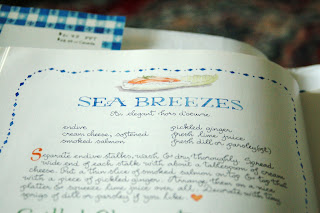 SEA BREEZES
An elegant hors d'oeuvre
endive pickled ginger
cream cheese, softened fresh lime juice
smoked salmon fresh dill (or parsley) (opt.)
Separate endive stalks, wash & dry thoroughly. Spread
wide end of each stalk with about a teaspoon of cream
cheese. Put a thin slice of smoked salmon on top & top that
with a piece of pickled ginger. Arrange them on a nice
platter & squeeze lime juice over all. Decorate with tiny
sprigs of dill or parsley if you like.